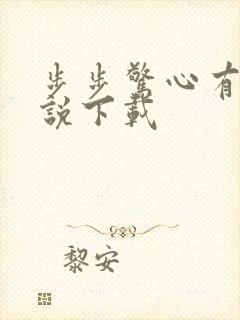 步步驚心有
說下載
黎安